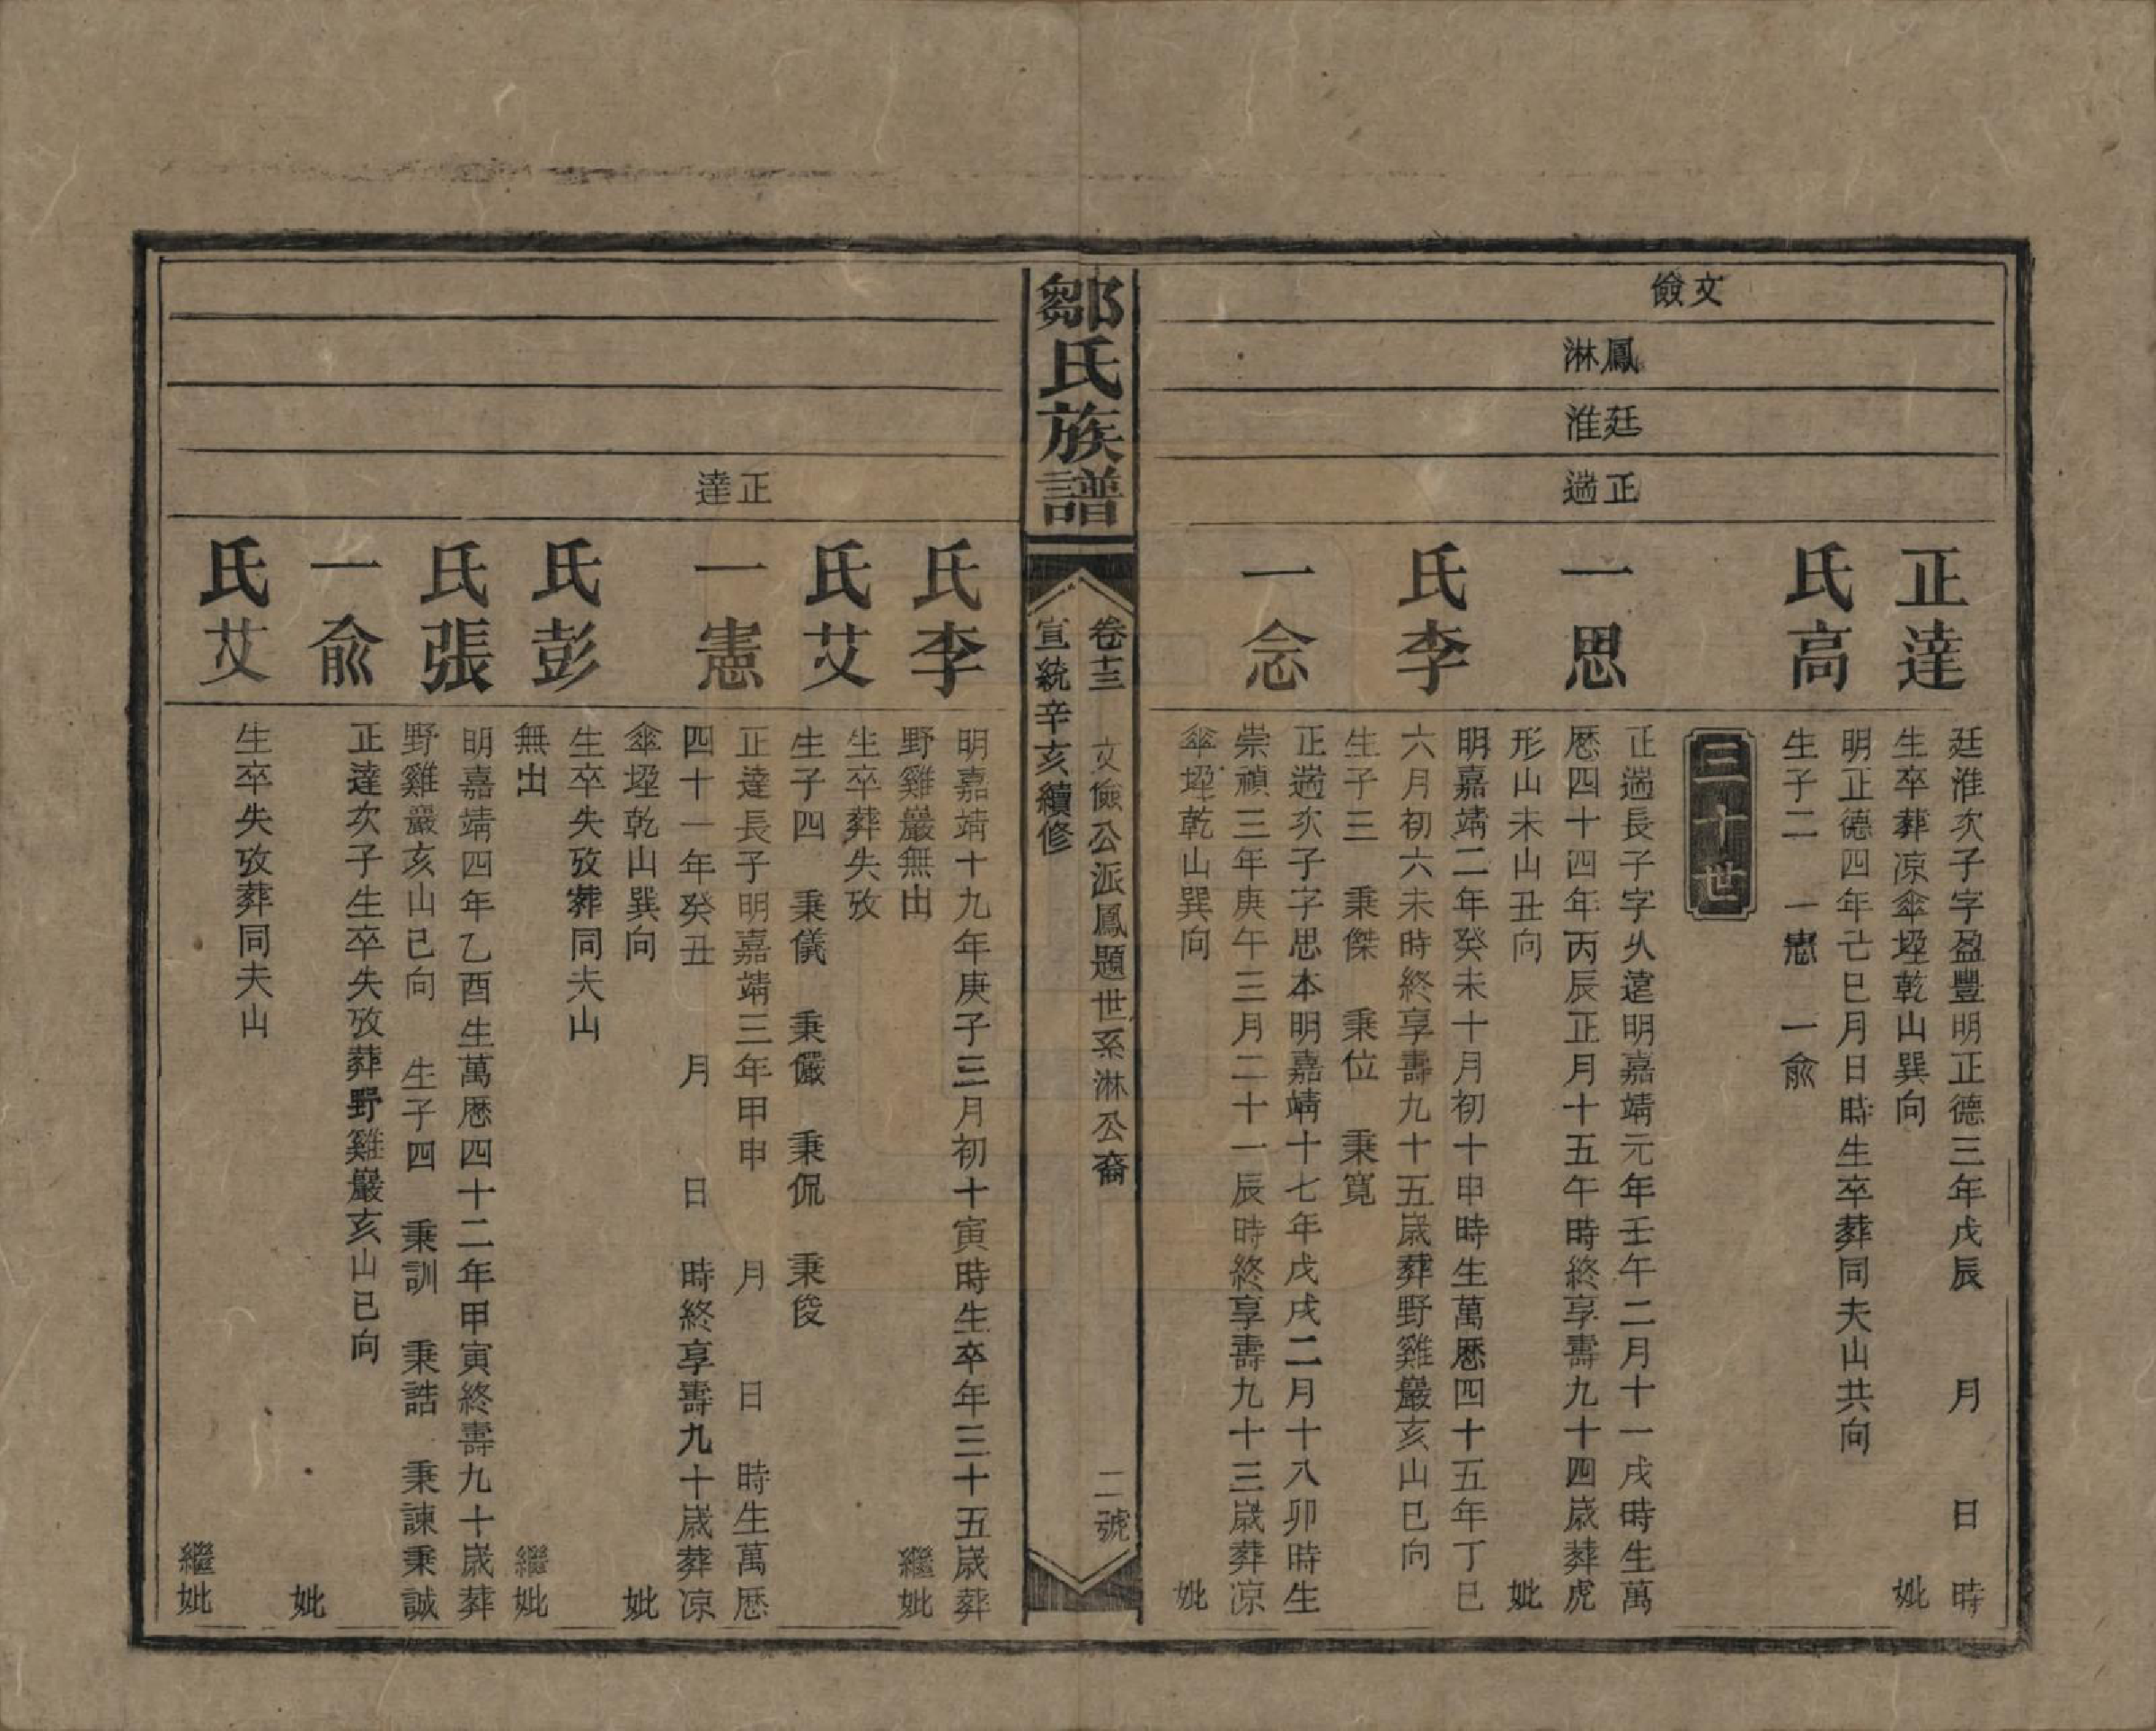 文儉
鳳淋
廷淮
正遄
正達
廷淮次子字盈豐明正德三年戊辰 月 日 時
生卒葬凉傘埡乾山巽向 妣
氏高
明正德四年己巳月日時生卒葬同夫山共向
生子二 一憲 一兪
三十世
一思
正遄長子字乆遠明嘉靖元年壬午二月十一戌時生萬
厯四十四年丙辰正月十五午時終享壽九十四歲葬虎
形山未山丑向 妣
氏李
明嘉靖二年癸未十月初十申時生萬厯四十五年丁巳
六月初六未時終享壽九十五歲葬野雞巖亥山巳向
生子三 秉傑 秉位 秉寬
一念
正遄次子字思本明嘉靖十七年戊戌二月十八卯時生
崇禎三年庚午三月二十一辰時終享壽九十三歲葬凉
傘埡乾山巽向 妣
鄒氏族譜
卷十三 文儉公派鳳題世系淋公裔 二號
宣統辛亥續修
正達
氏李
明嘉靖十九年庚子三月初十寅時生卒年三十五歲葬
野雞巖無出 繼妣
氏艾
生卒葬失攷
生子四 秉儀 秉儼 秉侃 秉俊
一憲
正達長子明嘉靖三年甲申 月 日 時生萬厯
四十一年癸丑 月 日 時終享壽九十歲葬凉
傘埡乾山巽向 妣
氏彭
生卒失攷葬同夫山
無出 繼妣
氏張
明嘉靖四年乙酉生萬厯四十二年甲寅終壽九十歲葬
野雞巖亥山巳向 生子四 秉訓 秉誥 秉諫秉誠
一兪
正達次子生卒失攷葬野雞巖亥山巳向
妣
氏艾
生卒失攷葬同夫山
繼妣